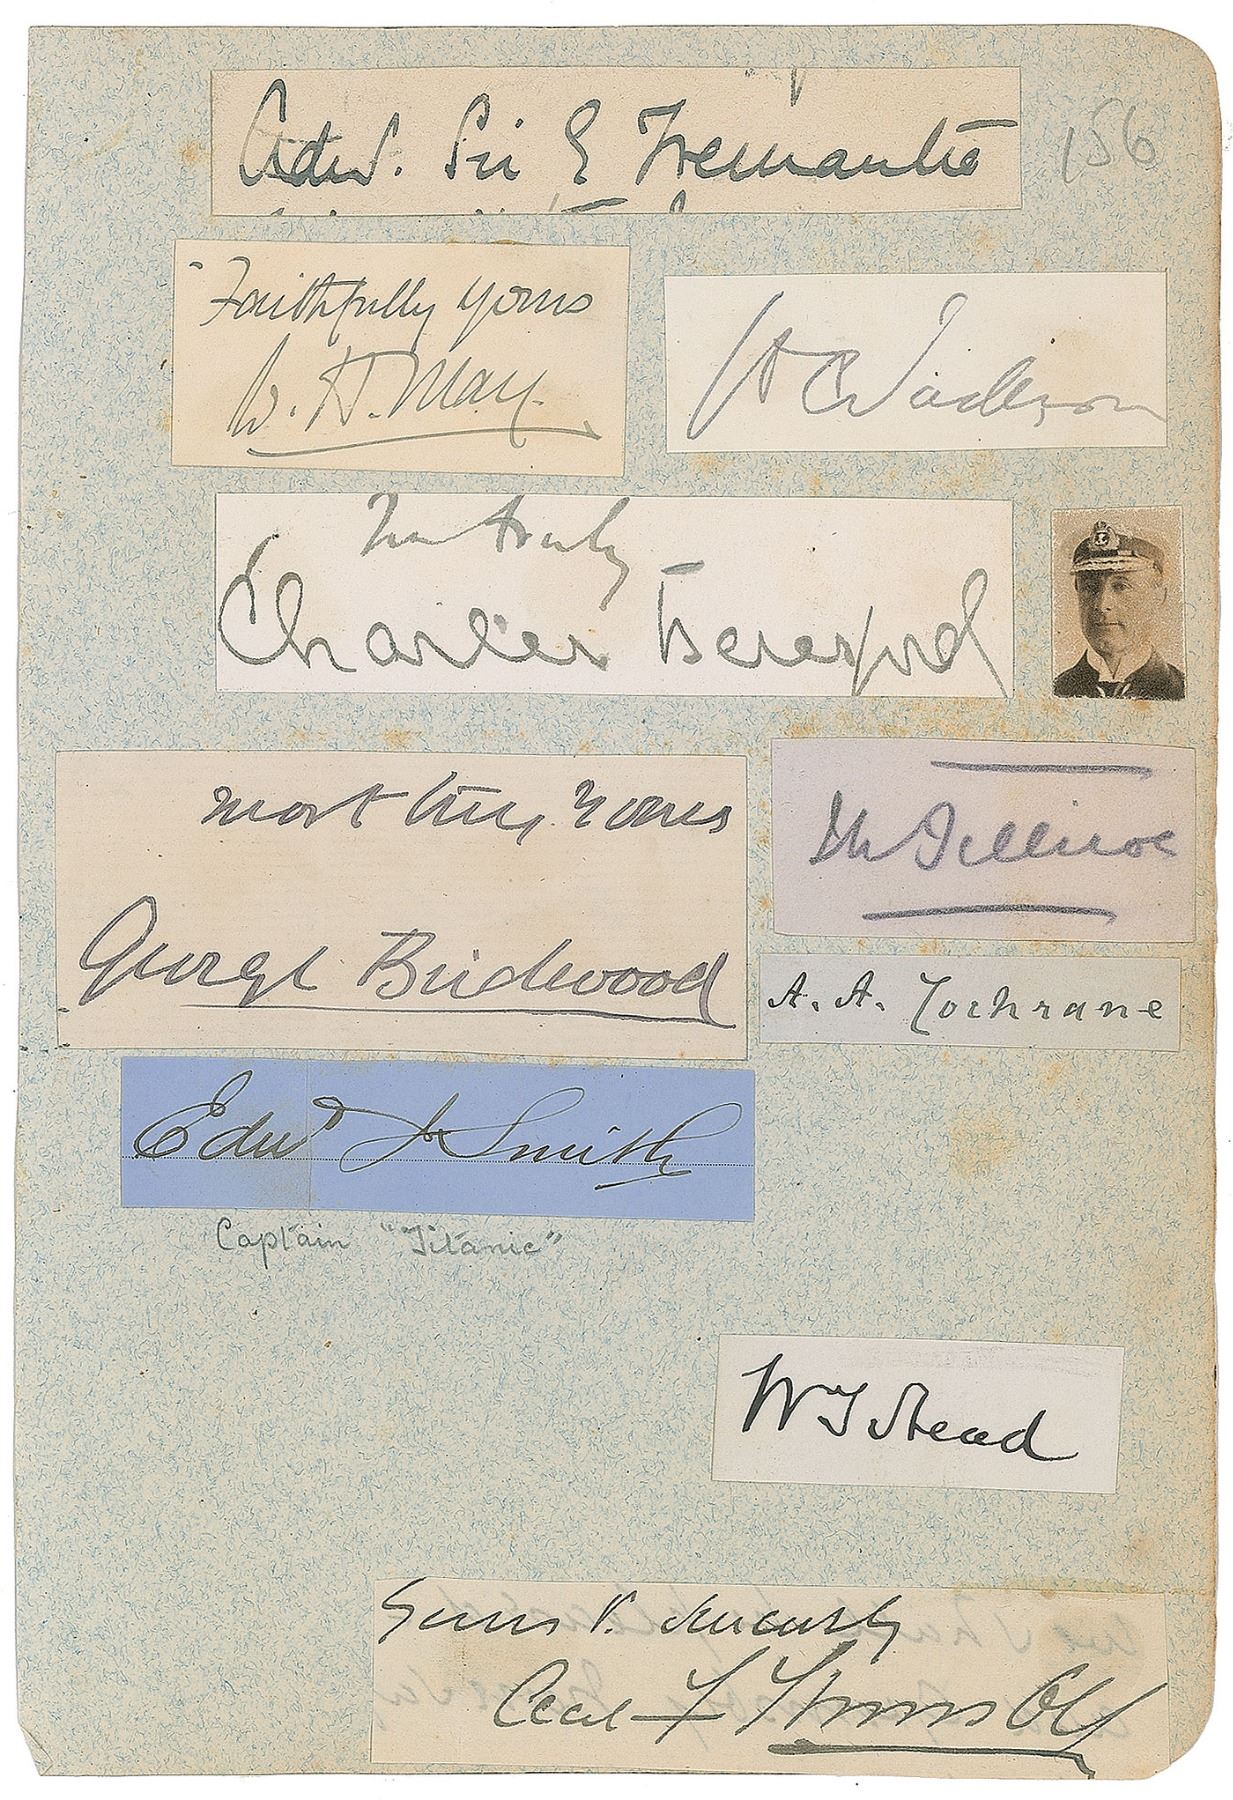 Adml. Sir E Fremantle
156
Faithfully yours
W. H. May
Yrs truly
Charles Beresford
most truly Yours
George Birdwood
A. A. Cochrane
Edwd J Smith
Captain "Titanic"
W T Stead
Yours v. sincerely
Cecil F